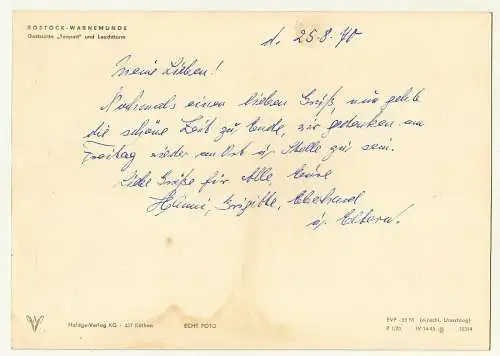 ROSTOCK-WARNEMÜNDE
Gaststätte „Teepott" und Leuchtturm
d. 25.8.70
Meine Lieben!
Nochmals einen lieben Gruß, nun geht
die schöne Zeit zu Ende, wir gedenken am
Freitag wieder an Ort u. Stelle zu sein.
Liebe Grüße für Alle, Eure
Heinni, Brigitte, Eberhard
u. Eltern.
Hofdgs-Verlag KG · 437 Köthen
ECHT FOTO
EVP -,25 M (einschl. Umschlag)
P 1/70 IV-14-45